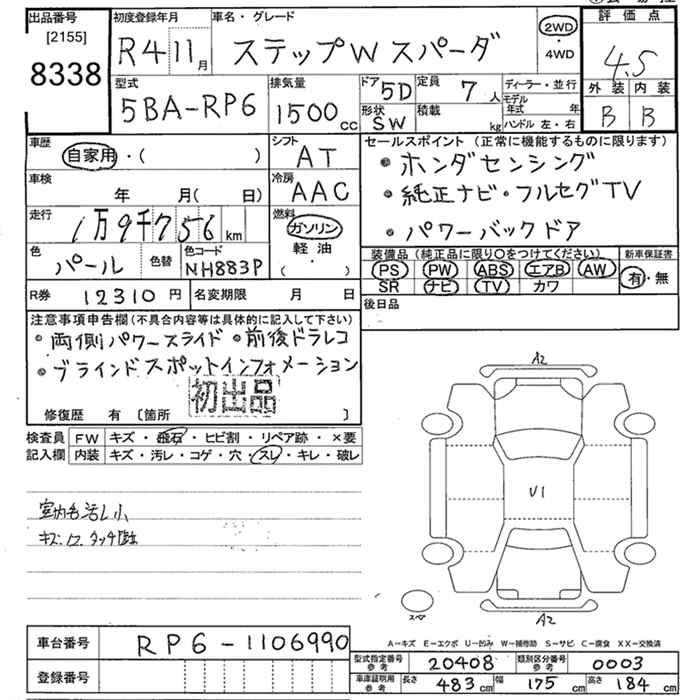 出品番号
[2155]
8338
初度登録年月
R4 11月
車名・グレード
ステップW スパーダ
2WD
・
4WD
評価点
4.5
外装 内装
B B
型式
5BA-RP6
排気量
1500cc
ドア 5D
形状 SW
定員 7人
積載 kg
ディーラー・並行
モデル年式 年
ハンドル 左・右
車歴
自家用・( )
シフト
AT
車検
年 月( 日)
冷房
AAC
走行
1万9千756km
燃料
ガソリン
・
軽油
( ・ )
色
パール
色替
色コード
NH883P
R券 12310円
名変期限 月 日
セールスポイント (正常に機能するものに限ります)
・ホンダセンシング
・純正ナビ・フルセグTV
・パワーバックドア
装備品 (純正品に限り○をつけてください)
PS PW ABS エアB AW
SR ナビ TV カワ
新車保証書
有・無
後日品
注意事項申告欄(不具合内容等は具体的に記入して下さい)
・両側パワースライド ・前後ドラレコ
・ブラインドスポットインフォメーション
初出品
修復歴 有 〔箇所 〕
検査員
記入欄
FW キズ・飛石・ヒビ割・リペア跡・×要
内装 キズ・汚レ・コゲ・穴・スレ・キレ・破レ
A2
U1
スペア
A2
A-キズ E-エクボ U-凹み W-補修跡 S-サビ C-腐食 XX-交換済
車台番号 RP6-1106990
登録番号
型式指定番号 参考 20408
類別区分番号 参考 0003
車庫証明用 参考 長さ 483cm 幅 175cm 高さ 184cm